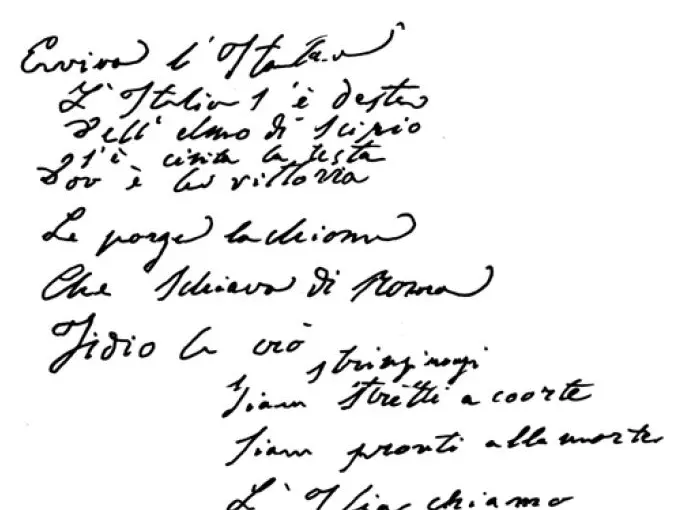 Evviva l'Italia
L'Italia s'è desta
Dell'elmo di Scipio
s'è cinta la testa
Dov'è la vittoria
Le porga la chioma
Che schiava di Roma
Iddio la creò
stringiamoci
siam stretti a coorte
siam pronti alla morte
L'Italia chiamò